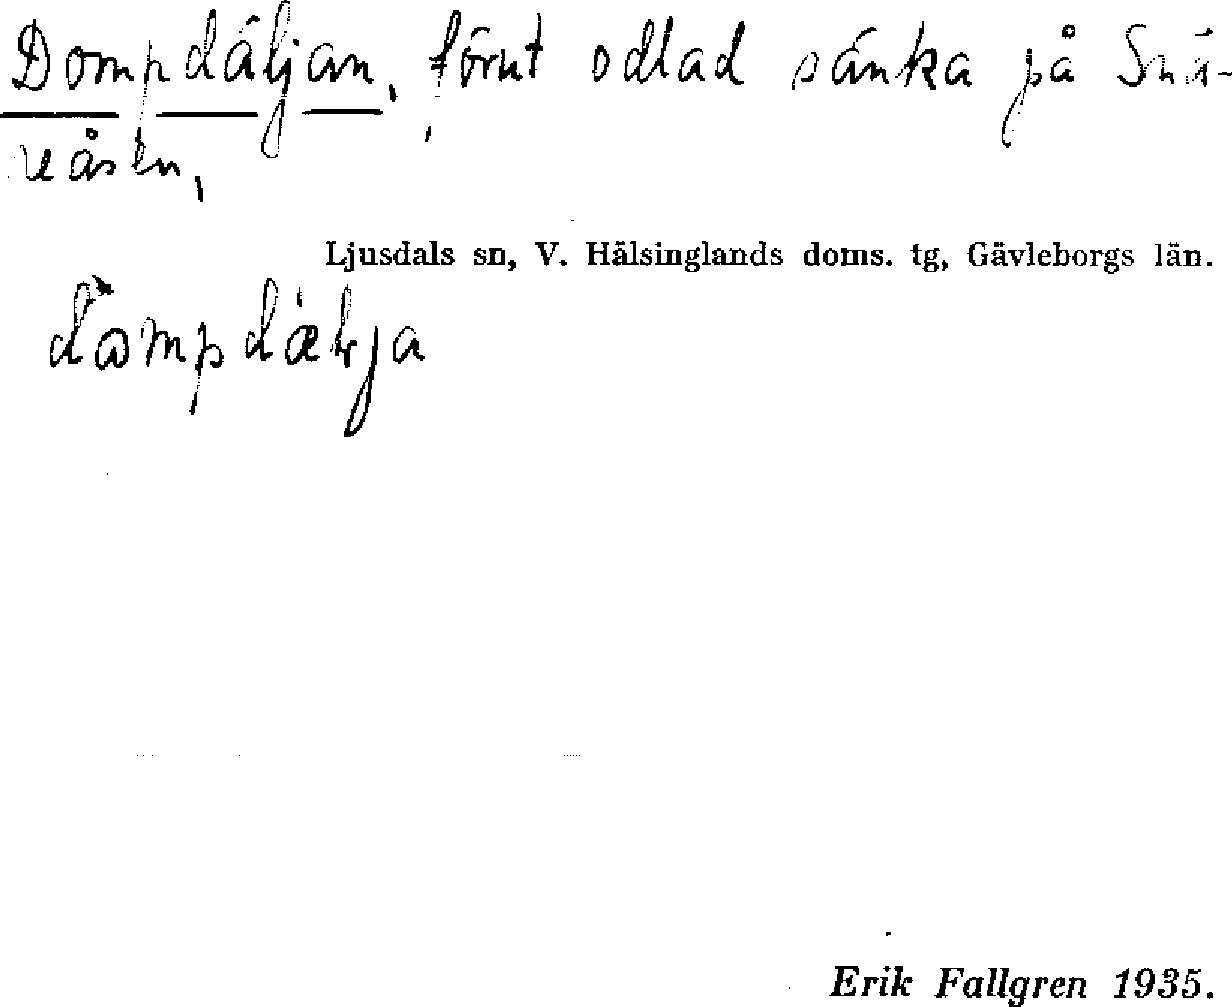 Dompdäljan, förut odlad sänka på Snä-
reåsen.
Ljusdals sn, V. Hälsinglands doms. tg, Gävleborgs län.
dωmpdæɽja
Erik Fallgren 1935.